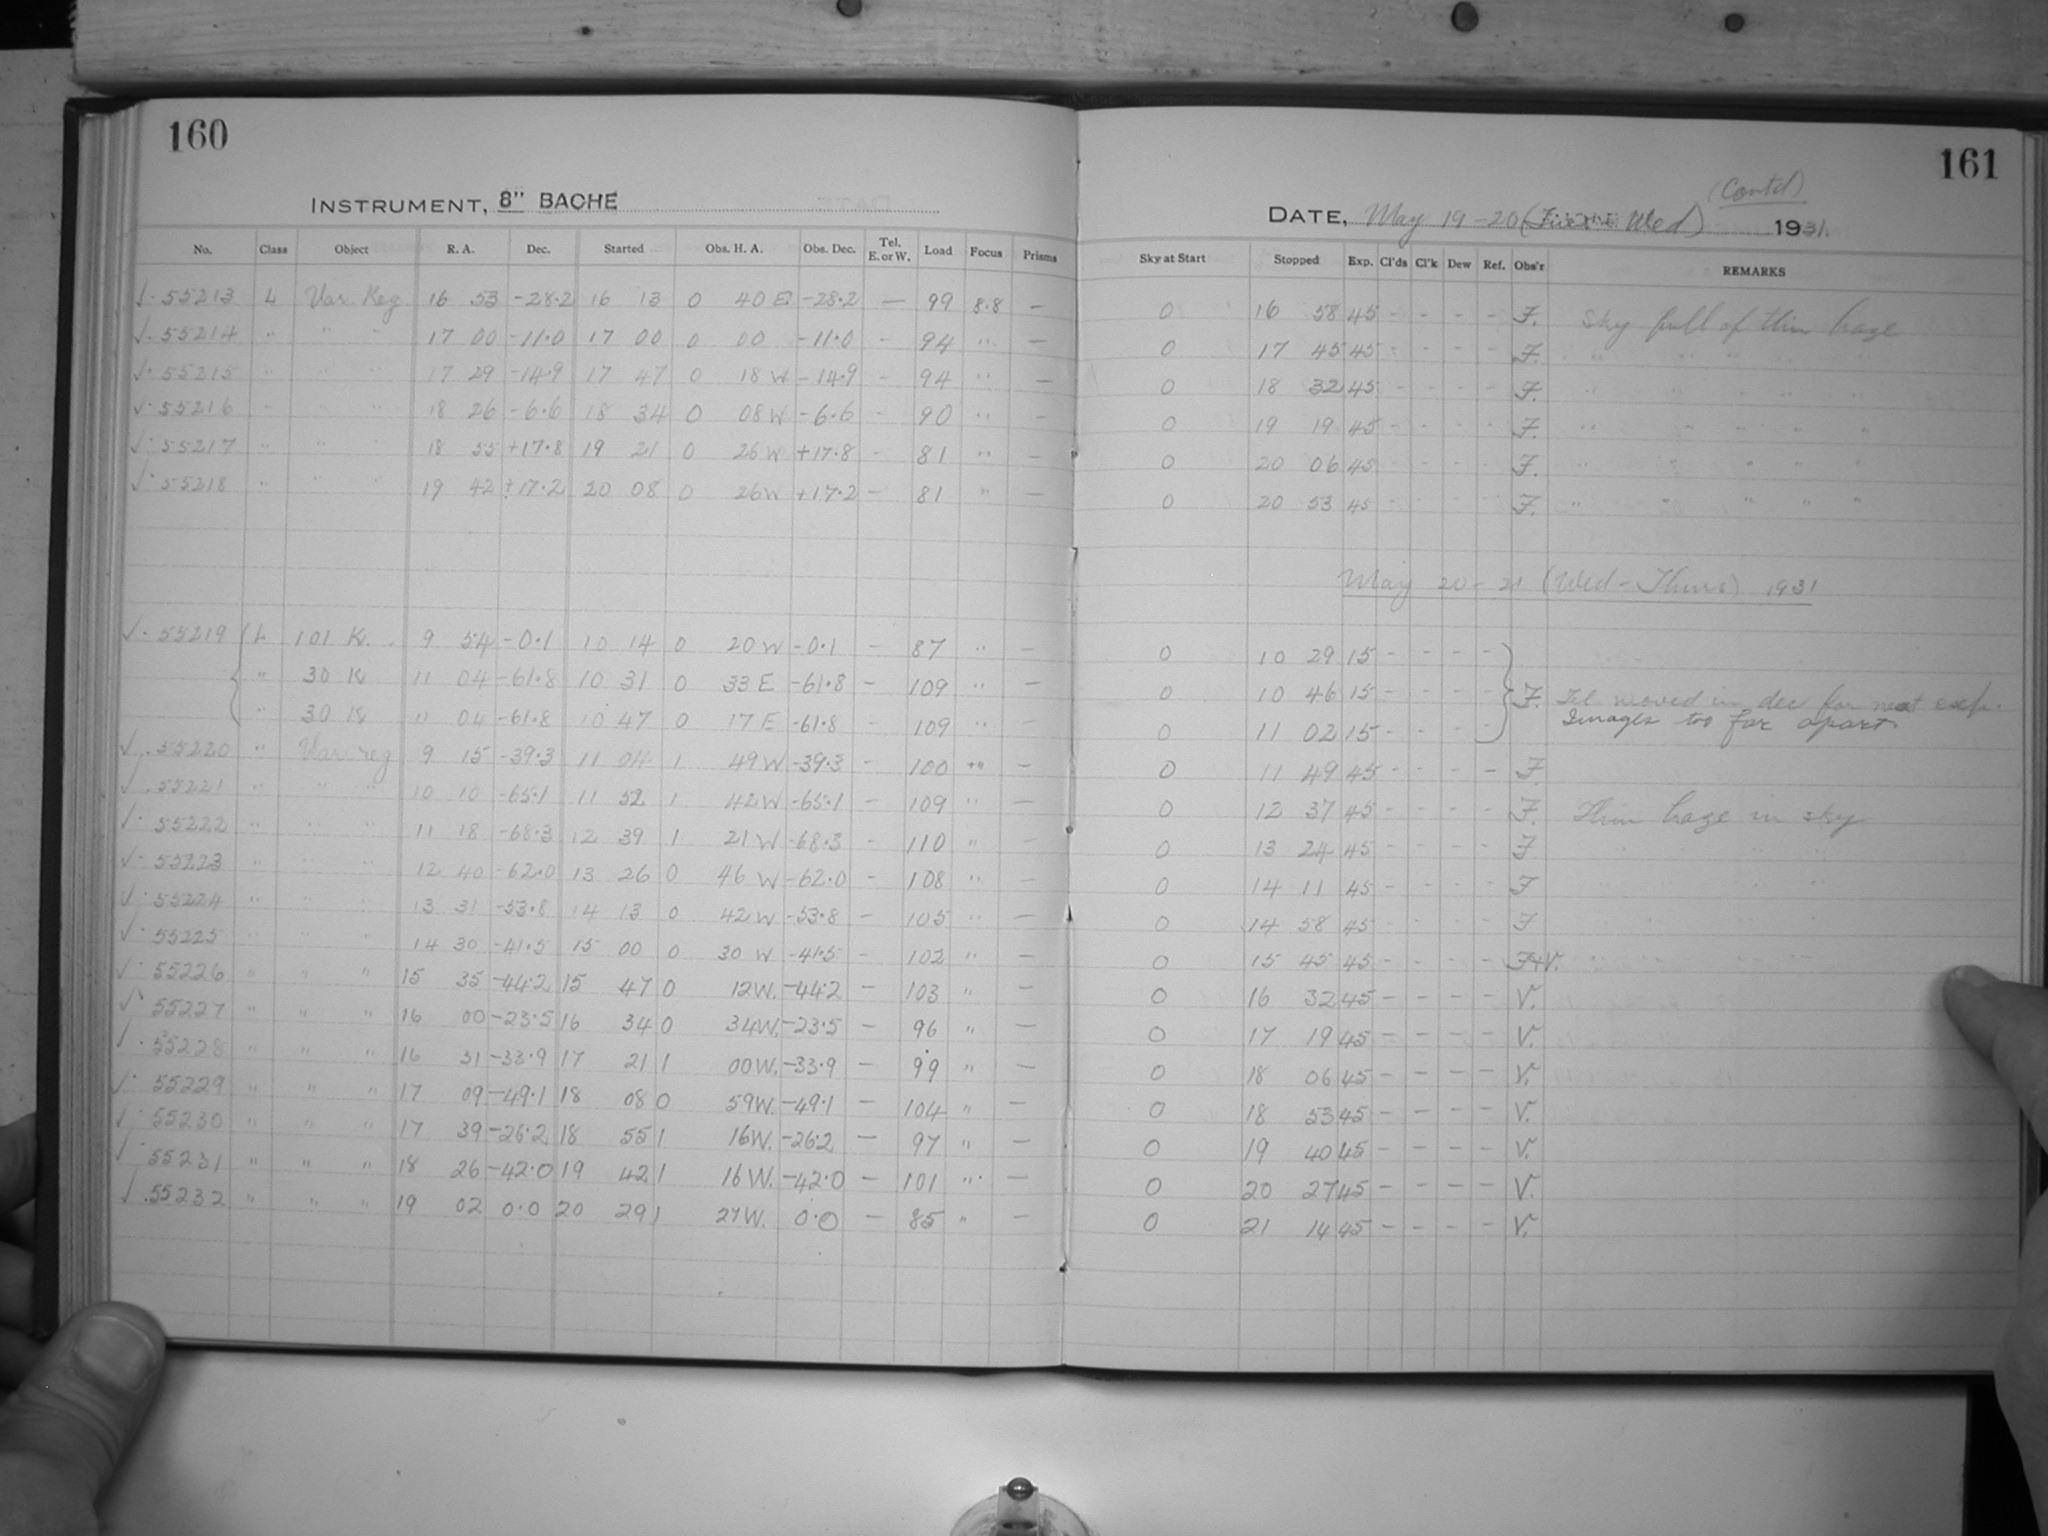 160
INSTRUMENT, 8" BACHE
No. Class Object R. A. Dec. Started Obs. H. A. Obs. Dec. Tel. E. or W. Load Focus Prisms
√ · 55213 L Var. Reg 16 53 -28.2 16 13 0 40 E -28.2 — 99 8.8 —
√ · 55214 " " " 17 00 -11.0 17 00 0 00 -11.0 - 94 " —
√ · 55215 " " " 17 29 -14.9 17 47 0 18 W -14.9 - 94 " —
√ · 55216 " " " 18 26 -6.6 18 34 0 08 W -6.6 - 90 " —
√ · 55217 " " " 18 55 +17.8 19 21 0 26 W +17.8 - 81 " —
√ · 55218 " " " 19 42 +17.2 20 08 0 26 W +17.2 - 81 " —
√ · 55219 L 101 K. 9 54 -0.1 10 14 0 20 W -0.1 - 87 " —
" 30 K 11 04 -61.8 10 31 0 33 E -61.8 - 109 " —
" 30 K 11 04 -61.8 10 47 0 17 E -61.8 - 109 " —
√ · 55220 " Var reg 9 15 -39.3 11 04 1 49 W -39.3 - 100 " —
√ · 55221 " " " 10 10 -65.1 11 52 1 42 W -65.1 - 109 " —
√ · 55222 " " " 11 18 -68.3 12 39 1 21 W -68.3 - 110 " —
√ · 55223 " " " 12 40 -62.0 13 26 0 46 W -62.0 - 108 " —
√ · 55224 " " " 13 31 -53.8 14 13 0 42 W -53.8 - 105 " —
√ · 55225 " " " 14 30 -41.5 15 00 0 30 W -41.5 - 102 " —
√ · 55226 " " " 15 35 -44.2 15 47 0 12 W. -44.2 — 103 " —
√ · 55227 " " " 16 00 -23.5 16 34 0 34 W. -23.5 — 96 " —
√ · 55228 " " " 16 31 -33.9 17 21 1 00 W. -33.9 — 99 " —
√ · 55229 " " " 17 09 -49.1 18 08 0 59 W. -49.1 — 104 " —
√ · 55230 " " " 17 39 -26.2 18 55 1 16 W. -26.2 — 97 " —
√ · 55231 " " " 18 26 -42.0 19 42 1 16 W. -42.0 — 101 " —
√ · 55232 " " " 19 02 0.0 20 29 1 27 W. 0.0 — 85 " —
161
(Contd)
DATE, May 19-20 Wed) 1931.
Sky at Start Stopped Exp. Cl'ds Cl'k Dew Ref. Obs'r REMARKS
0 16 58 45 - - - - F. Sky full of thin haze
0 17 45 45 - - - - F. " " " " "
0 18 32 45 - - - - F. " " " " "
0 19 19 45 - - - - F. " " " " "
0 20 06 45 - - - - F. " " " " "
0 20 53 45 - - - - F. " " " " "
May 20-21 (Wed-Thurs) 1931
0 10 29 15 - - - -
0 10 46 15 - - - - F. Tel moved in dec for next exp.
Images too far apart
0 11 02 15 - - -
0 11 49 45 - - - - F
0 12 37 45 - - - - F. Thin haze in sky
0 13 24 45 - - - - F " " " "
0 14 11 45 - - - - F " " " "
0 14 58 45 - - - - F " " " "
0 15 45 45 - - - - F+V. " " " "
0 16 32 45 - - - - V.
0 17 19 45 - - - - V.
0 18 06 45 - - - - V.
0 18 53 45 - - - - V.
0 19 40 45 - - - - V.
0 20 27 45 - - - - V.
0 21 14 45 - - - - V.